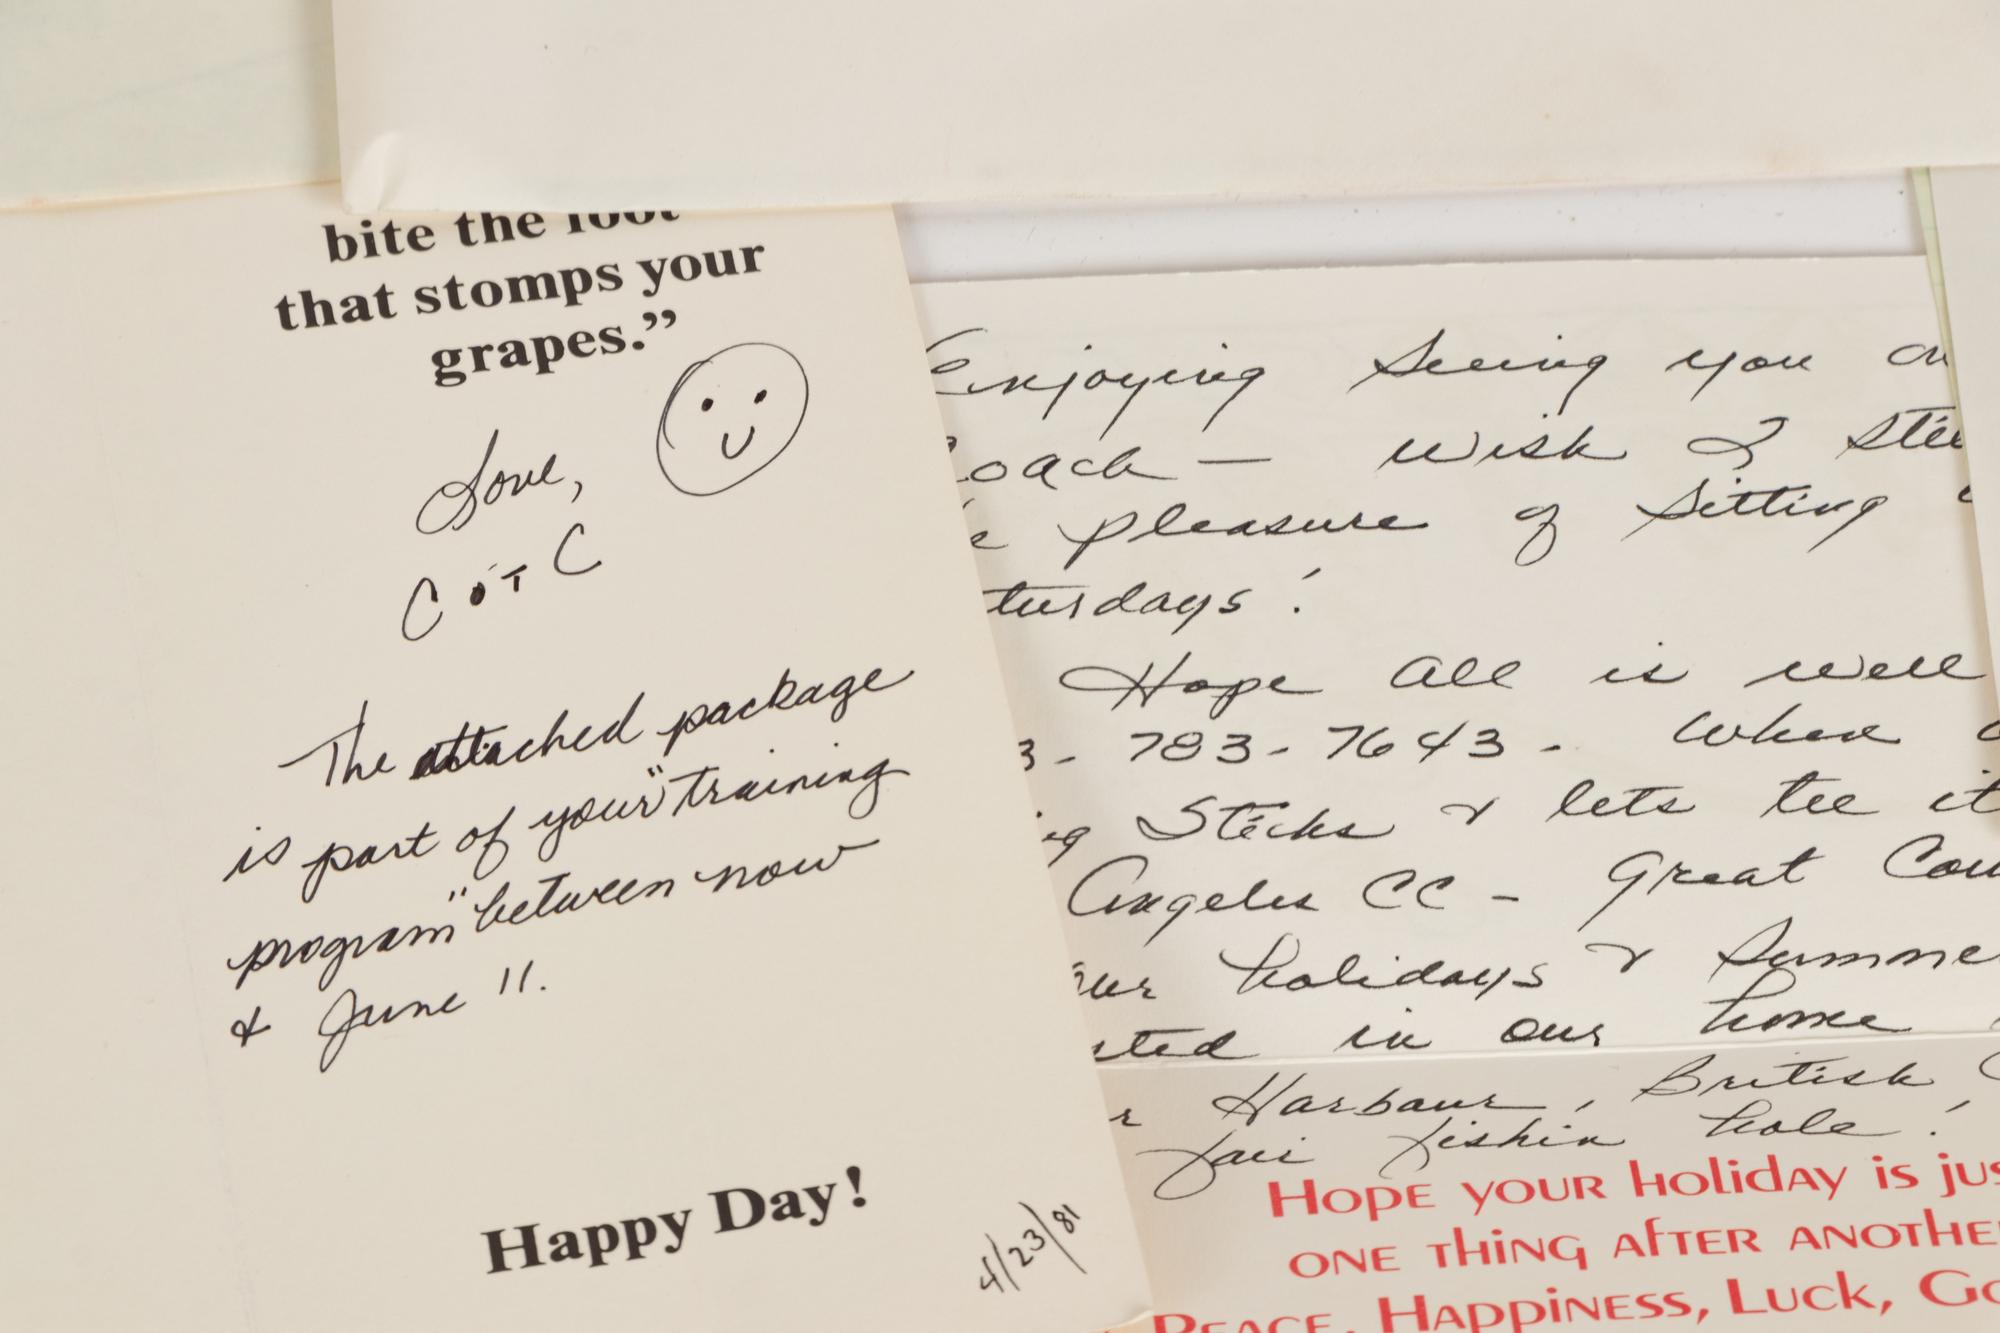 bite the foot
that stomps your
grapes."
Love,
C & C
The attached package
is part of your "training
program" between now
& June 11.
Happy Day!
4/23/81
Enjoying seeing you on
Coach — wish I still
pleasure of sitting
turdays!
Hope all is well
3-783-7643 - When
Sticks & lets tee it
Angeles CC - Great Cou
our holidays & Summe
sted in our home
r Harbour, British C
Fair Fishin hole!
Hope your holiday is jus
one thing after anothe
Peace, Happiness, Luck, Go